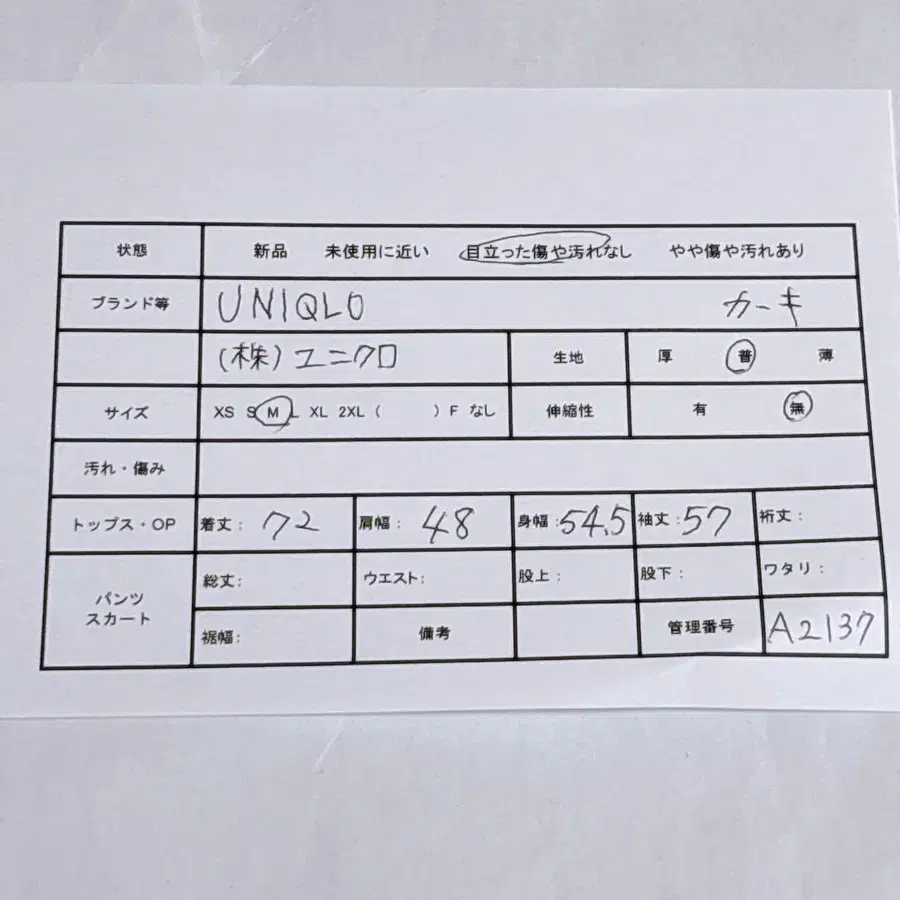 状態 新品 未使用に近い 目立った傷や汚れなし やや傷や汚れあり
ブランド等 UNIQLO カーキ
(株)ユニクロ 生地 厚 普 薄
サイズ XS S M L XL 2XL ( ) F なし 伸縮性 有 無
汚れ・傷み
トップス・OP 着丈: 72 肩幅: 48 身幅:54.5 袖丈:57 裄丈:
パンツ スカート 総丈: ウエスト: 股上: 股下: ワタリ:
裾幅: 備考 管理番号 A2137